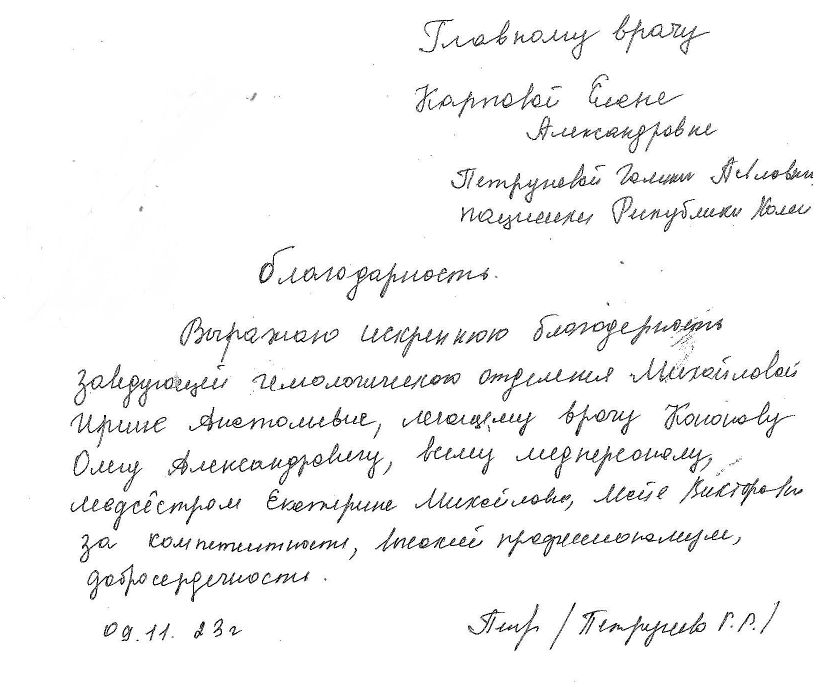 Главному врачу
Карповой Елене
Александровне
Петруневой Галины
пациентки Республики Коми
Благодарность.
Выражаю искреннюю благодарность
заведующей гемологического отделения Михайловой
Ирине Анатольевне, лечащему врачу Кононову
Олегу Александровичу, всему медперсоналу,
медсёстрам Екатерине Михайловне, Майе Викторовне
за компетентность, высокий профессионализм,
добросердечность.
09.11.23г
/Петрунева Г.